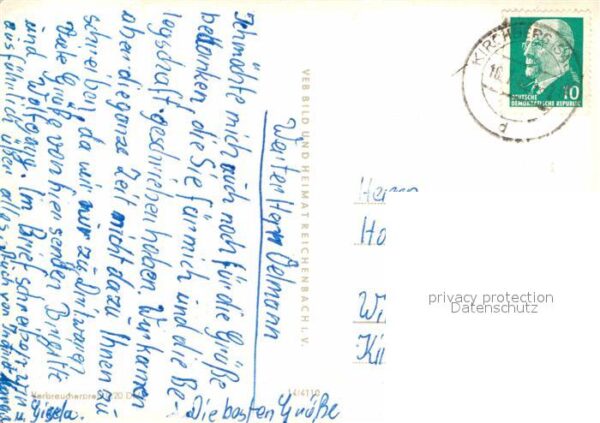 Werter Herr Oelmann
Ich möchte mich auch noch für die Grüße
bedanken, die Sie für mich und die Be-
legschaft geschrieben haben. Wir kamen
aber die ganze Zeit nicht dazu Ihnen zu
schreiben da wir nur zu Dritt waren
Viele Grüße von hier senden Brigitte
und Wolfgang. Im Brief schreiben
ausführlich über alles. Auch von
u. Gisela.
Die besten Grüße
VEB BILD UND HEIMAT REICHENBACH I. V.
Verbraucherpreis 0,20 DM
KIRCHBERG
10
DEUTSCHE
DEMOKRATISCHE REPUBLIK
d
Herrn
Ho
Wi
Ki
privacy protection
Datenschutz